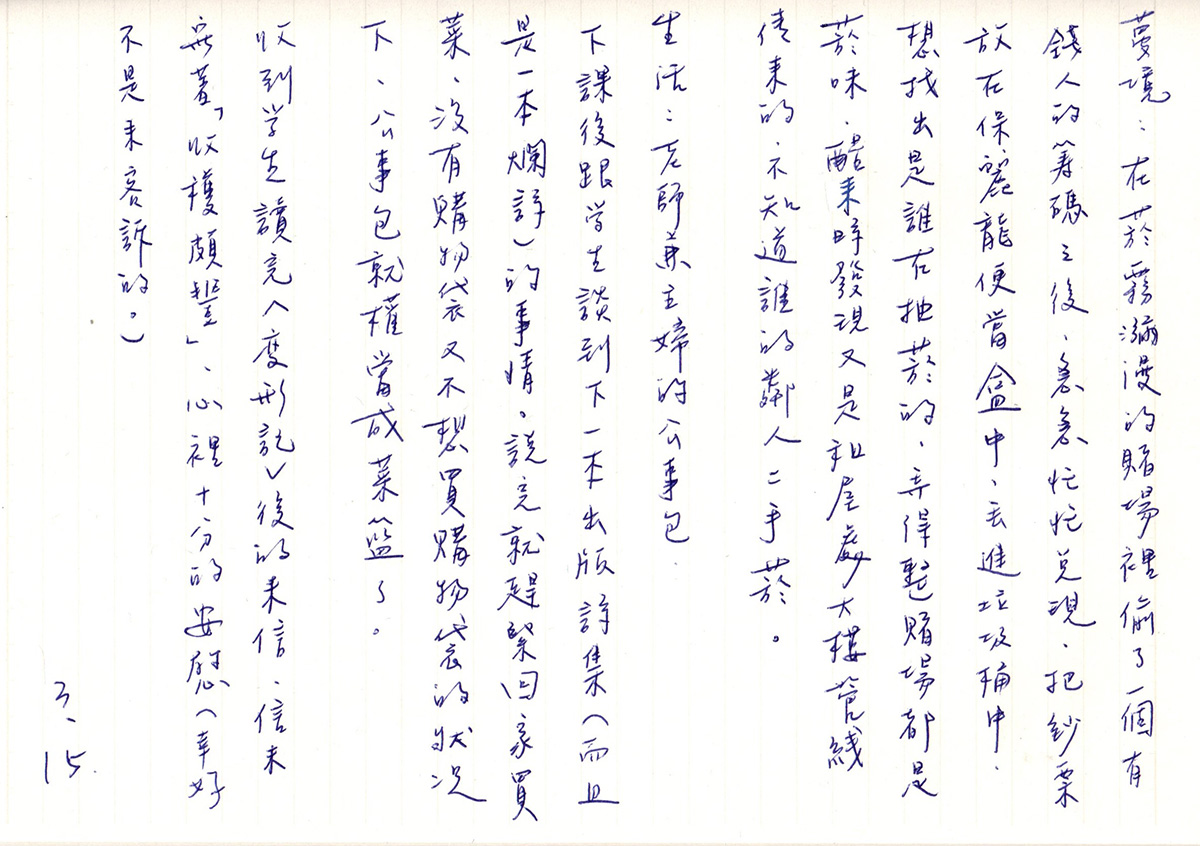 夢境：在菸霧瀰漫的賭場裡偷了一個有
錢人的籌碼之後、急急忙忙兌現、把鈔票
放在保麗龍便當盒中、丟進垃圾桶中．
想找出是誰在抽菸的、弄得整賭場都是
菸味．醒来時發現又是租屋處大樓管線
傳来的、不知道誰的鄰人二手菸。
生活：老師兼主婦的公事包
下課後跟学生談到下一本出版詩集（而且
是一本爛詩）的事情。說完就趕緊回家買
菜、沒有購物袋又不想買購物袋的狀况
下、公事包就權當成菜籃了。
收到学生讀完〈變形記〉後的来信、信末
寫著「收穫頗豐」、心裡十分的安慰（幸好
不是来客訴的。）
3.15